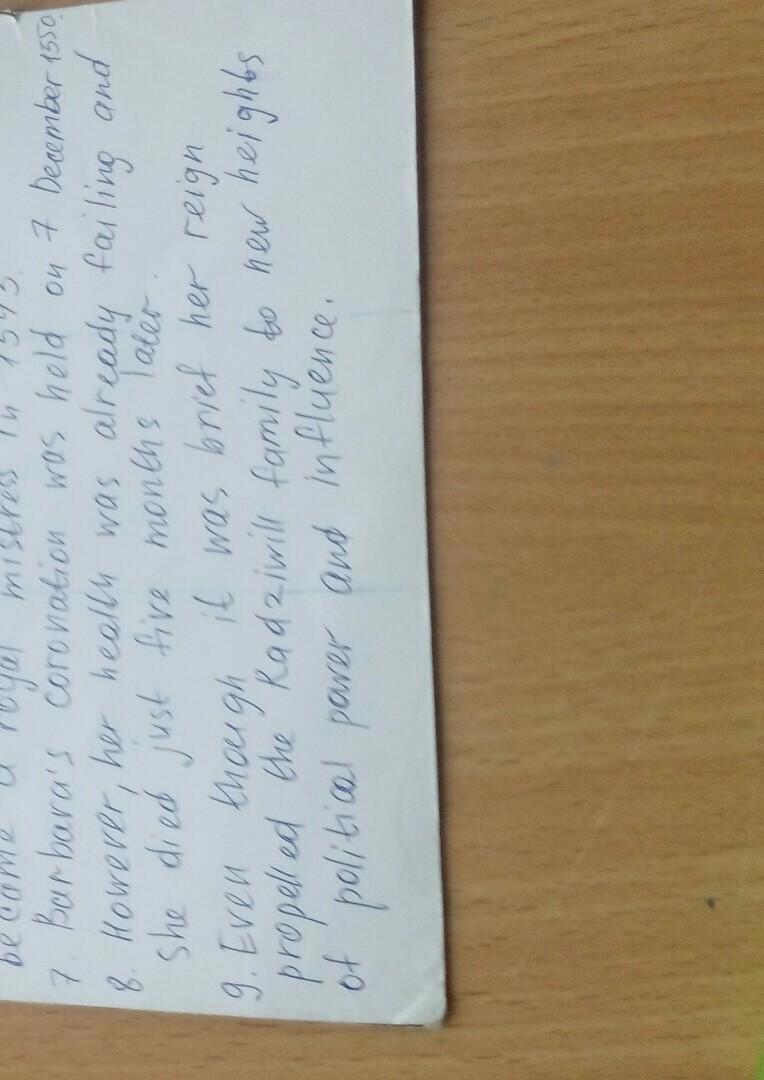 became a royal mistress in 1543.
7. Barbara's coronation was held on 7 December 1550.
8. However, her health was already failing and
she died just five months later.
9. Even though it was brief her reign
propelled the Radziwill family to new heights
of political power and influence.